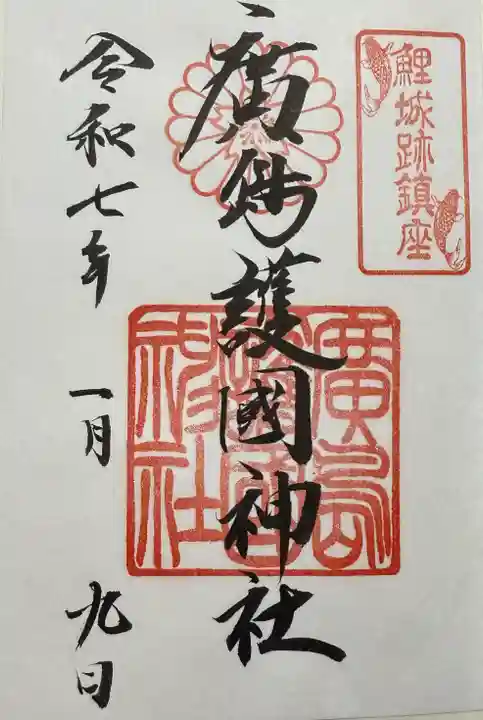 鯉城跡鎮座
廣島護國神社
廣島護國神社
令和七年
一月
九日